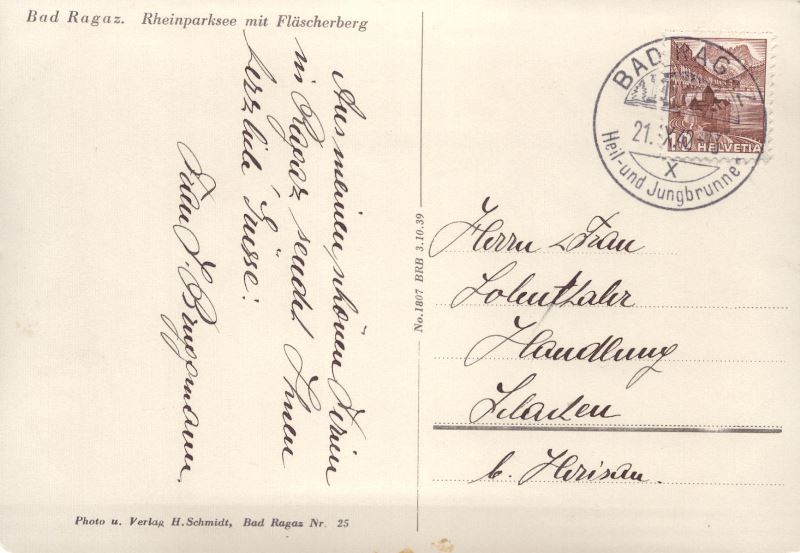 Bad Ragaz. Rheinparksee mit Fläscherberg
Aus meinen schönen Ferien
in Ragaz sendet Ihnen
herzliche Grüsse!
Frau Bruggmann.
Photo u. Verlag H. Schmidt, Bad Ragaz Nr. 25
No. 1807 BRB 3.10.39
BAD RAGAZ
21.
X
Heil- und Jungbrunnen
10 HELVETIA
Herrn & Frau
Handlung
b. Herisau.